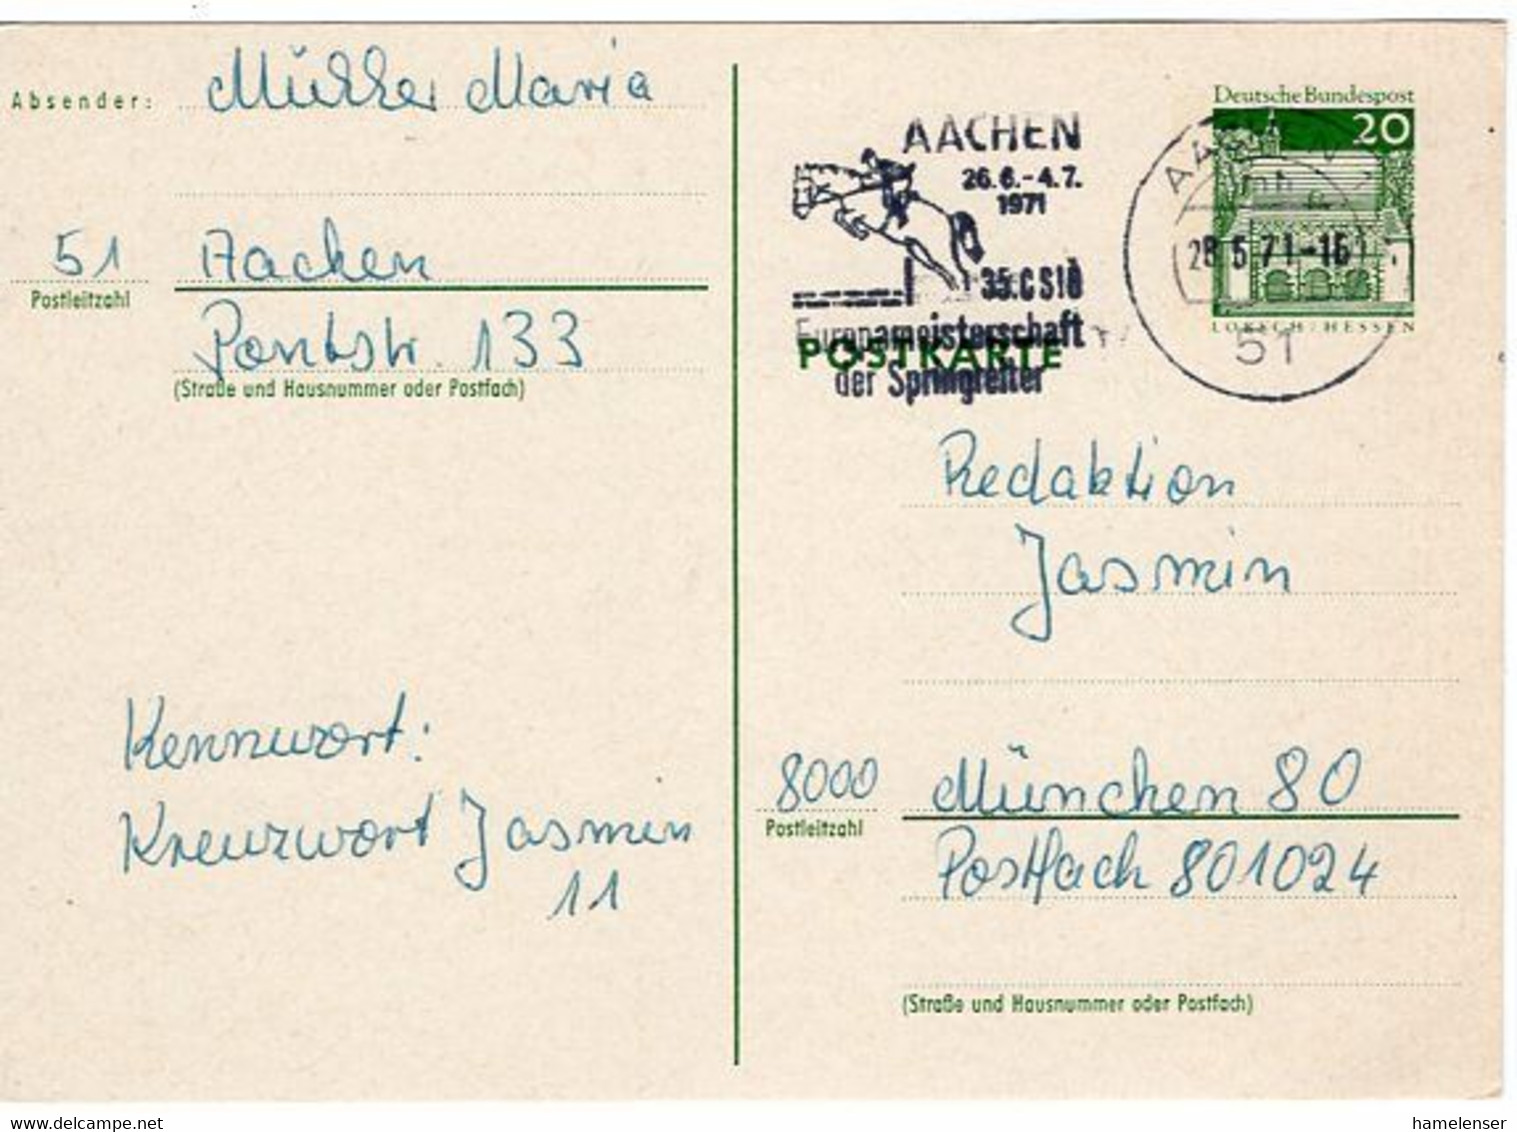 Absender: Müller Maria
51 Aachen
Postleitzahl
Pontstr. 133
(Straße und Hausnummer oder Postfach)
Kennwort:
Kreuzwort Jasmin
11
AACHEN
26.6.-4.7.
1971
35.CSIO
Europameisterschaft
der Springreiter
POSTKARTE
Deutsche Bundespost
20
LORSCH/HESSEN
28.5.71-16
51
Redaktion
Jasmin
8000 München 80
Postleitzahl
Postfach 801024
(Straße und Hausnummer oder Postfach)
www.delcampe.net
hamelenser